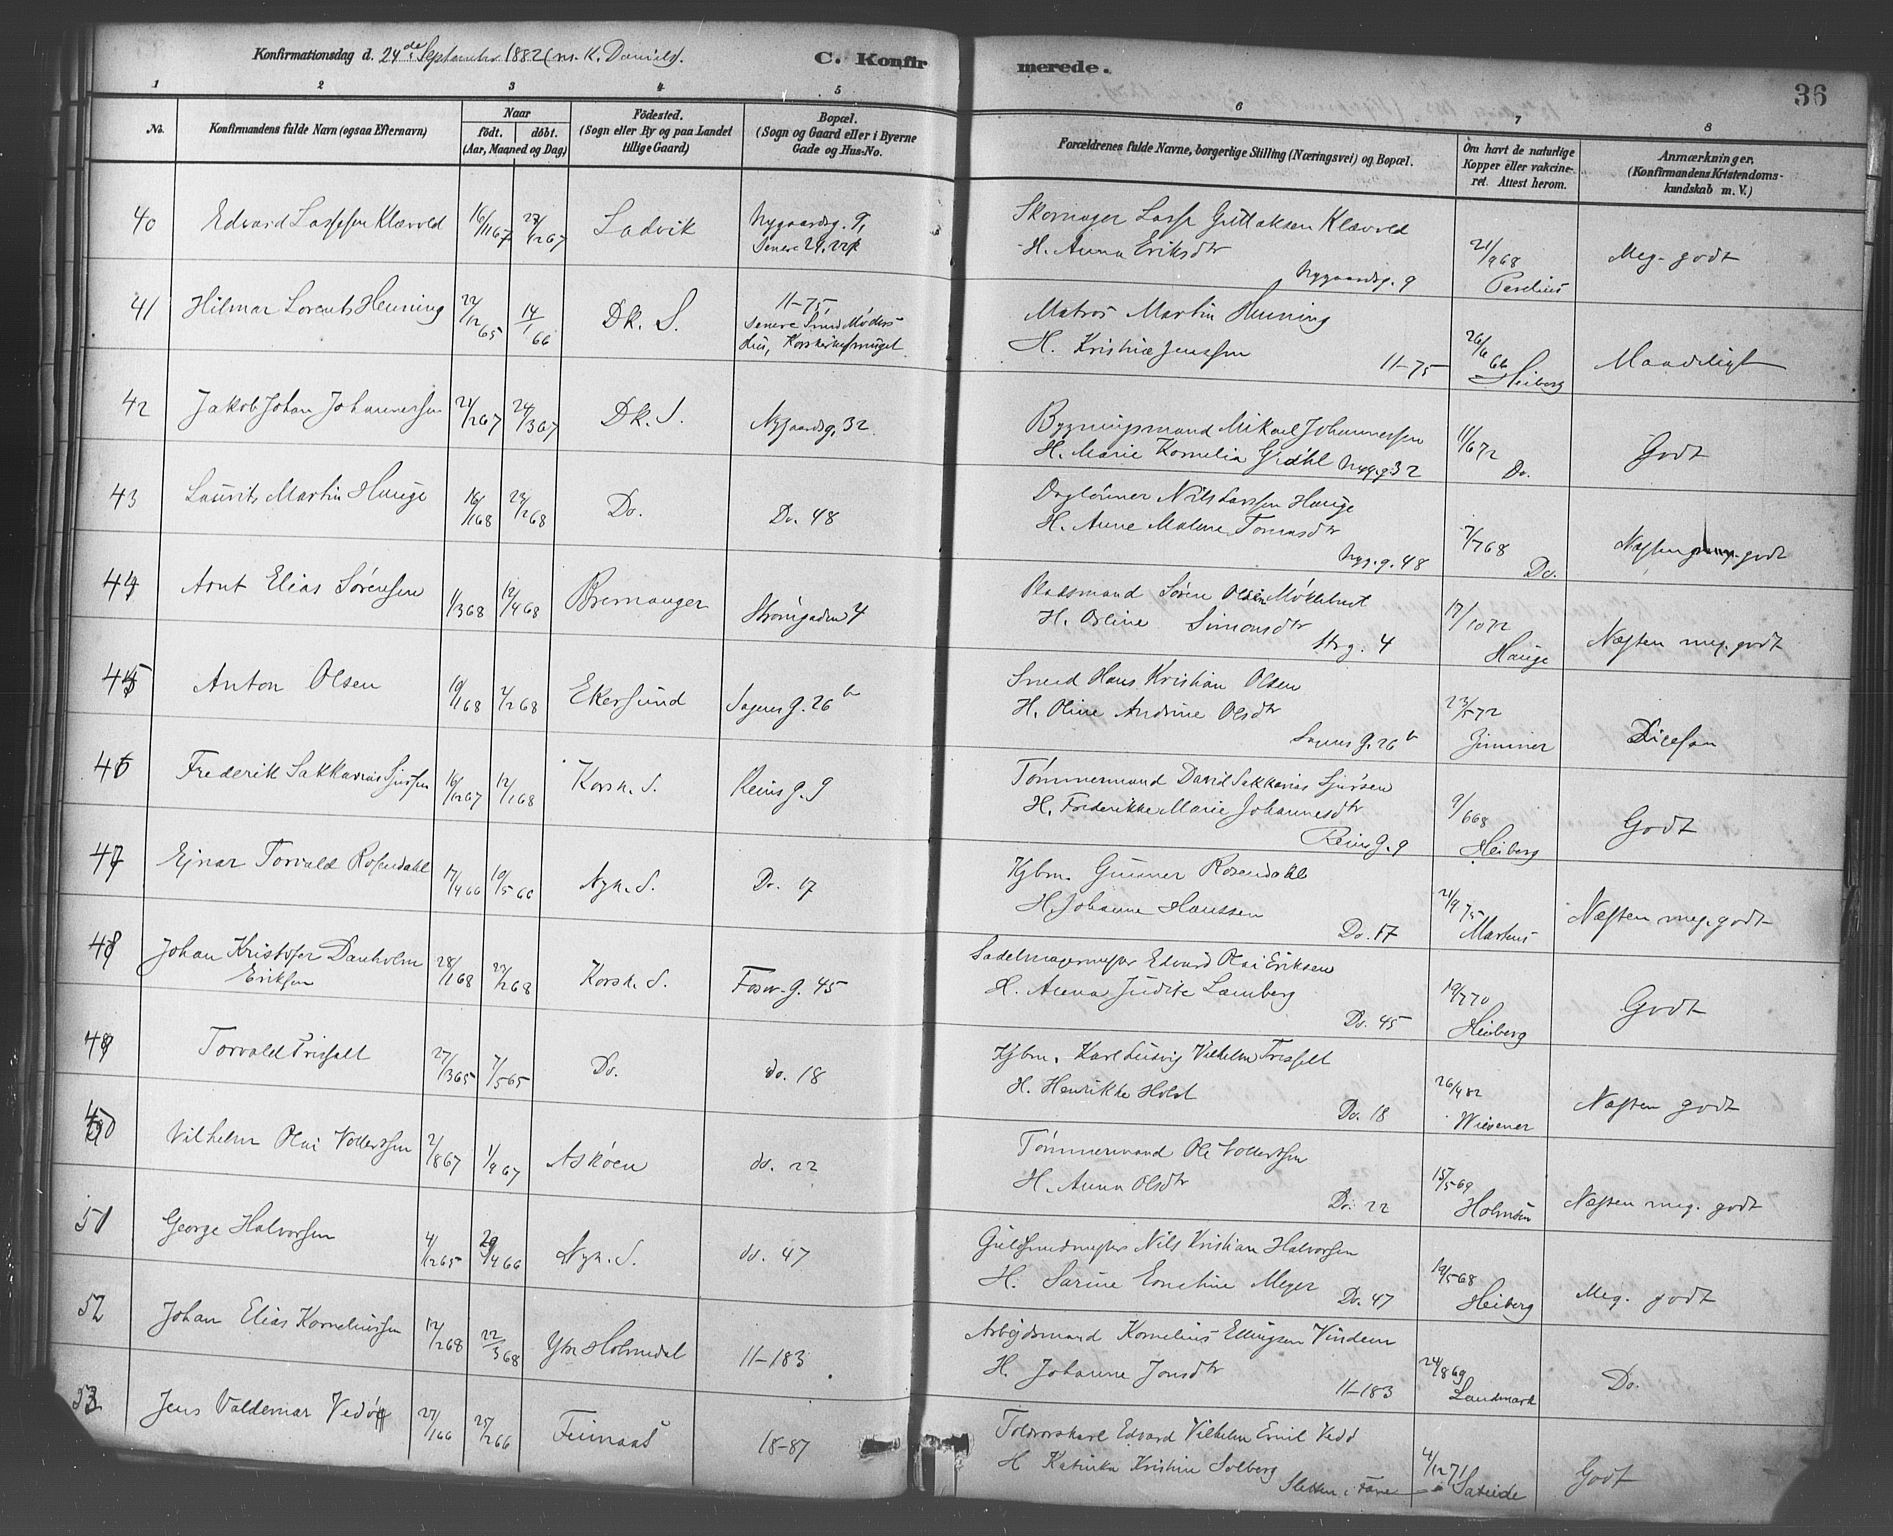 Konfirmationsdag d. 24de September 1882
C. Konfirmerede.
36
1 2 3 4 5 6 7 8
No.
Konfirmandens fulde Navn (ogsaa Efternavn)
Naar
født. døbt.
(Aar, Maaned og Dag)
Fødested.
(Sogn eller By og paa Landet
tillige Gaard)
Bopæl.
(Sogn og Gaard eller i Byerne
Gade og Hus-No.
Forældrenes fulde Navne, borgerlige Stilling (Næringsvei) og Bopæl.
Om havt de naturlige
Kopper eller vakcine-
ret. Attest herom.
Anmærkninger.
(Konfirmandens Kristendoms-
kundskab m. V.)
40 Edvard Lassesen Klævold 16/11 67 /12 67 Ladvik Nygaardsg. 9,
Skomager Lasse Guttaksen Klævold
H. Anna Eriksdtr
Nygaardsg. 9
21/9 68
Meg. godt
41 Hilmar Lorents Henning 22/12 65 14/1 66 Dk. S. 11-75,
Matros Martin Henning
H. Kristine Jenssen
11-75
26/6 66 Heiberg
Maadeligt
42 Jakob Johan Johannessen 21/2 67 24/3 67 Dk. S. Nygaardsg. 32
Bygningsmand Mikael Johannessen
H. Marie Kornelia Grøhl Nygg. 32
11/6 72 Do.
Godt
43 Laurits Martin Hauge 16/1 68 23/2 68 Do. Do. 48
Daglønner Nils Larssen Hauge
H. Anne Malene Tomasdtr
Nyg. g. 48
7/7 68 Do.
Næsten meg. godt
44 Arnt Elias Sørensen 11/3 68 12/4 68 Bremanger Strømgaden 4
Pladsmand Søren Olsen Møklebust
H. Oline Simonsdtr
Strg. 4
17/10 72 Hauge
Næsten meg. godt
45 Anton Olsen 19/1 68 2/2 68 Ekersund 26b
Smed Hans Kristian Olsen
H. Oline Andrine Olsdtr
26b
23/5 72
Ligesaa
46 Frederik Sakkarias Sjursen 16/12 67 12/1 68 Korsk. S. Reins g. 9
Tømmermand David Sakkarias Sjursen
H. Frederikke Marie Johannesdtr
Reins g. 9
9/6 68 Heiberg
Godt
47 Ejnar Torvald Rosendahl 17/4 66 10/5 66 Nyk. S. Do. 17
Kjbm. Gunner Rosendahl
H. Johanne Hanssen
Do. 17
21/9 75 Martens
Næsten meg. godt
48 Johan Kristofer Danholm
Eriksen 28/1 68 23/2 68 Korsk. S. Fosv. g. 45
Sadelmagermester Edvard Olai Eriksen
H. Anna Judite Lamberg
Do. 45
19/7 70 Heiberg
Godt
49 Torvald Frisfelt 27/3 65 7/5 65 Do. do. 18
Kjbm. Karl Ludvig Vilhelm Frisfelt
H. Henrikke Holst
Do. 18
26/4 82 Wiesener
Næsten godt
50 Vilhelm Olai Vollertsen 2/8 67 1/9 67 Askøen do. 22
Tømmermand Ole Vollertsen
H. Anna Olsdtr
Do. 22
15/5 69 Holmsen
Næsten meg. godt
51 George Halvorsen 4/12 65 29/4 66 Nyk. S. do. 47
Guldsmedmester Nils Kristian Halvorsen
H. Sarine Ernstine Meyer Do. 47
19/5 68 Heiberg
Meg. godt
52 Johan Elias Korneliussen 12/2 68 22/3 68 Ytre Holmedal 11-183
Arbejdsmand Kornelius Ellingsen Vindenes
H. Johanne Jonsdtr
11-183
24/8 69 Landmark
Do.
53 Jens Valdemar Vedø 27/1 66 25/2 66 18-87
Toldrorskarl Edvard Vilhelm Emil Vedø
H Katinka Kristine Solberg
4/12 71
Godt